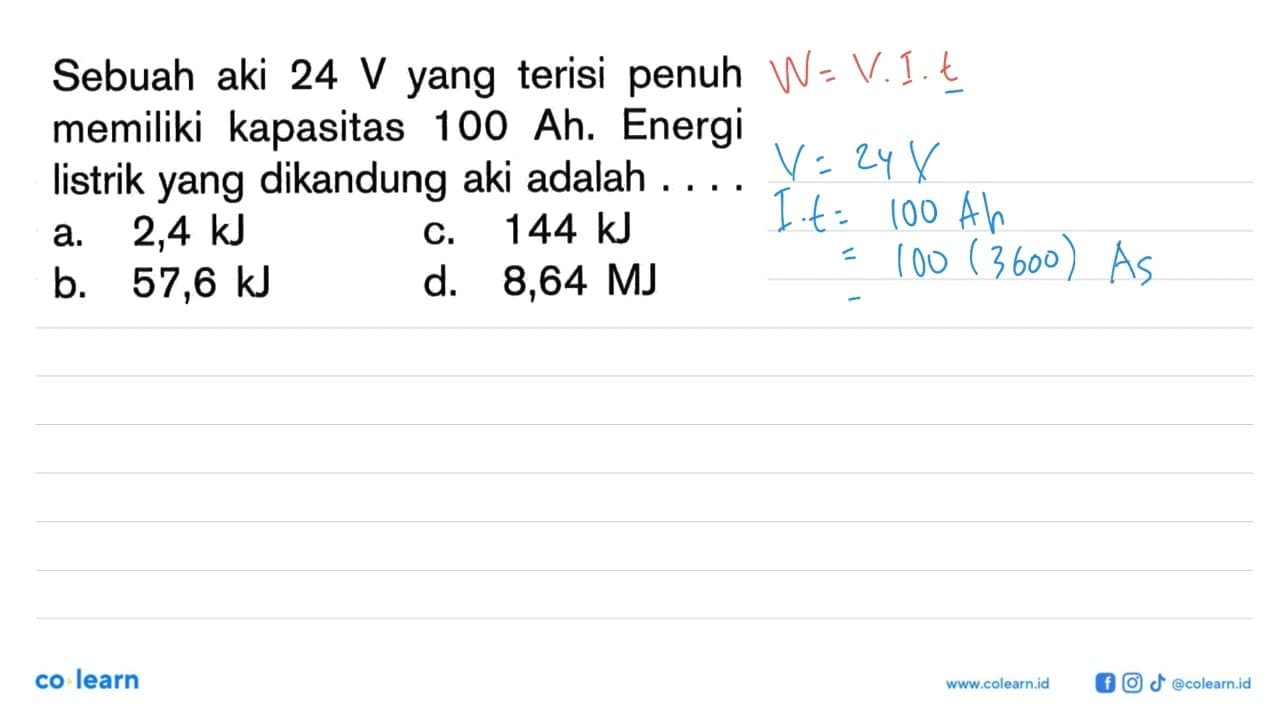 Sebuah aki 24 V yang terisi penuh
memiliki kapasitas 100 Ah. Energi
listrik yang dikandung aki adalah . . . .
a. 2,4 kJ c. 144 kJ
b. 57,6 kJ d. 8,64 MJ
W = V. I. t
V = 24 V
I.t = 100 Ah
= 100 (3600) As
-
co learn
www.colearn.id @colearn.id